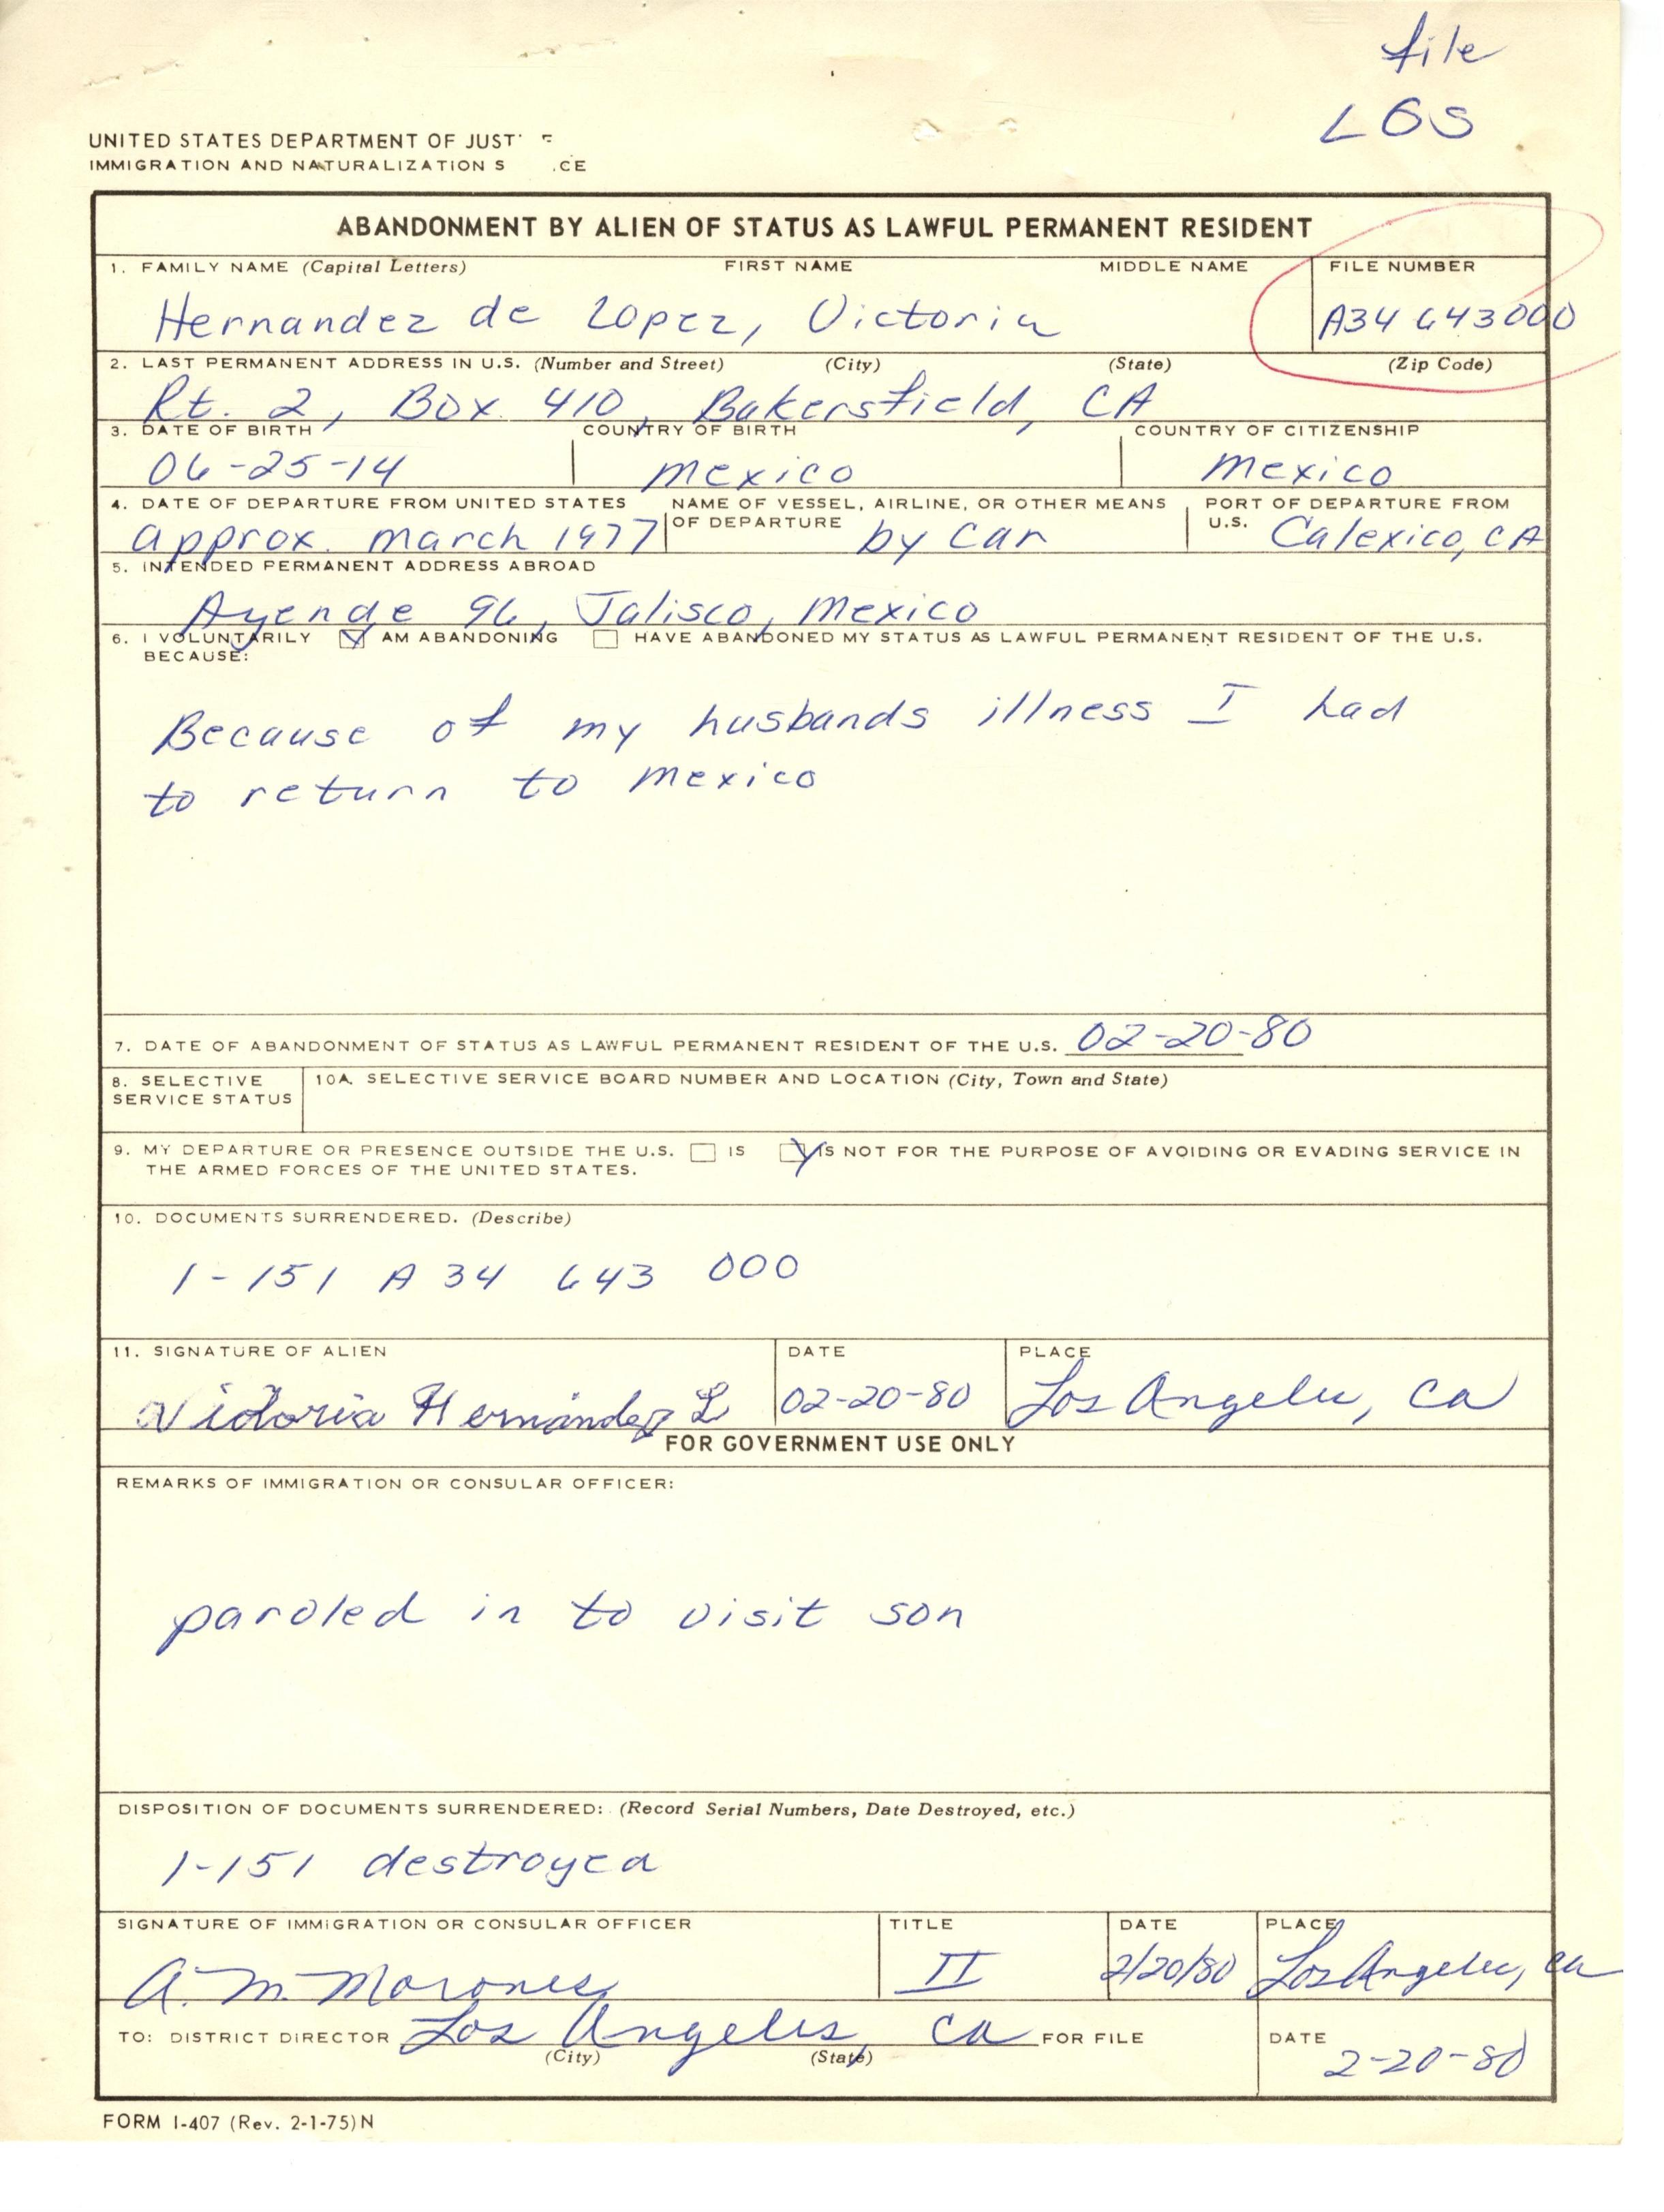 file
LOS
UNITED STATES DEPARTMENT OF JUST E
IMMIGRATION AND NATURALIZATION S .CE
ABANDONMENT BY ALIEN OF STATUS AS LAWFUL PERMANENT RESIDENT
1. FAMILY NAME (Capital Letters) FIRST NAME MIDDLE NAME FILE NUMBER
Hernandez de Lopez, Victoria A34 643000
2. LAST PERMANENT ADDRESS IN U.S. (Number and Street) (City) (State) (Zip Code)
Rt. 2, Box 410, Bakersfield, CA
3. DATE OF BIRTH COUNTRY OF BIRTH COUNTRY OF CITIZENSHIP
06-25-14 mexico mexico
4. DATE OF DEPARTURE FROM UNITED STATES NAME OF VESSEL, AIRLINE, OR OTHER MEANS PORT OF DEPARTURE FROM
OF DEPARTURE U.S.
approx. march 1977 by car Calexico, CA
5. INTENDED PERMANENT ADDRESS ABROAD
Ayende 96, Jalisco, Mexico
6. I VOLUNTARILY AM ABANDONING HAVE ABANDONED MY STATUS AS LAWFUL PERMANENT RESIDENT OF THE U.S.
BECAUSE:
Because of my husbands illness I had
to return to mexico
7. DATE OF ABANDONMENT OF STATUS AS LAWFUL PERMANENT RESIDENT OF THE U.S. 02-20-80
8. SELECTIVE 10A. SELECTIVE SERVICE BOARD NUMBER AND LOCATION (City, Town and State)
SERVICE STATUS
9. MY DEPARTURE OR PRESENCE OUTSIDE THE U.S. IS IS NOT FOR THE PURPOSE OF AVOIDING OR EVADING SERVICE IN
THE ARMED FORCES OF THE UNITED STATES.
10. DOCUMENTS SURRENDERED. (Describe)
1-151 A 34 643 000
11. SIGNATURE OF ALIEN DATE PLACE
Victoria Hernández L 02-20-80 Los Angeles, Ca
FOR GOVERNMENT USE ONLY
REMARKS OF IMMIGRATION OR CONSULAR OFFICER:
paroled in to visit son
DISPOSITION OF DOCUMENTS SURRENDERED: (Record Serial Numbers, Date Destroyed, etc.)
1-151 destroyed
SIGNATURE OF IMMIGRATION OR CONSULAR OFFICER TITLE DATE PLACE
A. M. Morones II 2/20/80 Los Angeles, Ca
TO: DISTRICT DIRECTOR Los Angeles, Ca FOR FILE DATE
(City) (State) 2-20-80
FORM I-407 (Rev. 2-1-75) N